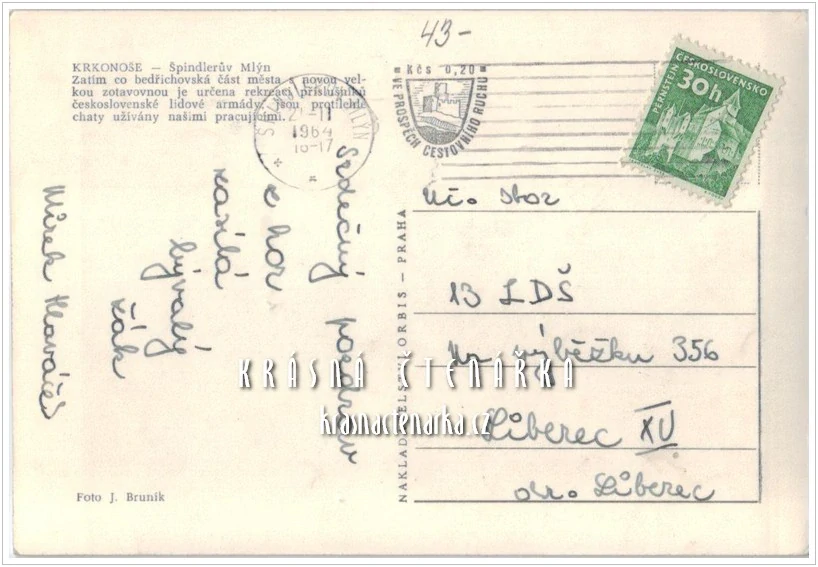 43-
KRKONOŠE — Špindlerův Mlýn
Zatím co bedřichovská část města s novou vel-
kou zotavovnou je určena rekreaci příslušníků
československé lidové armády, jsou protilehlé
chaty užívány našimi pracujícími.
-II
1964
16-17
Kčs 0,20
VE PROSPĚCH CESTOVNÍHO RUCHU
PERNŠTEJN
ČESKOSLOVENSKO
30h
Srdečný pozdrav
z hor
zasílá
bývalý
žák
Mirek Hlaváček
Uč. sbor
13 LDŠ
Na výběžku 356
Liberec XV
okr. Liberec
NAKLADATELSTVÍ ORBIS — PRAHA
KRÁSNÁ ČTENÁŘKA
krasnactenarka.cz
Foto J. Bruník